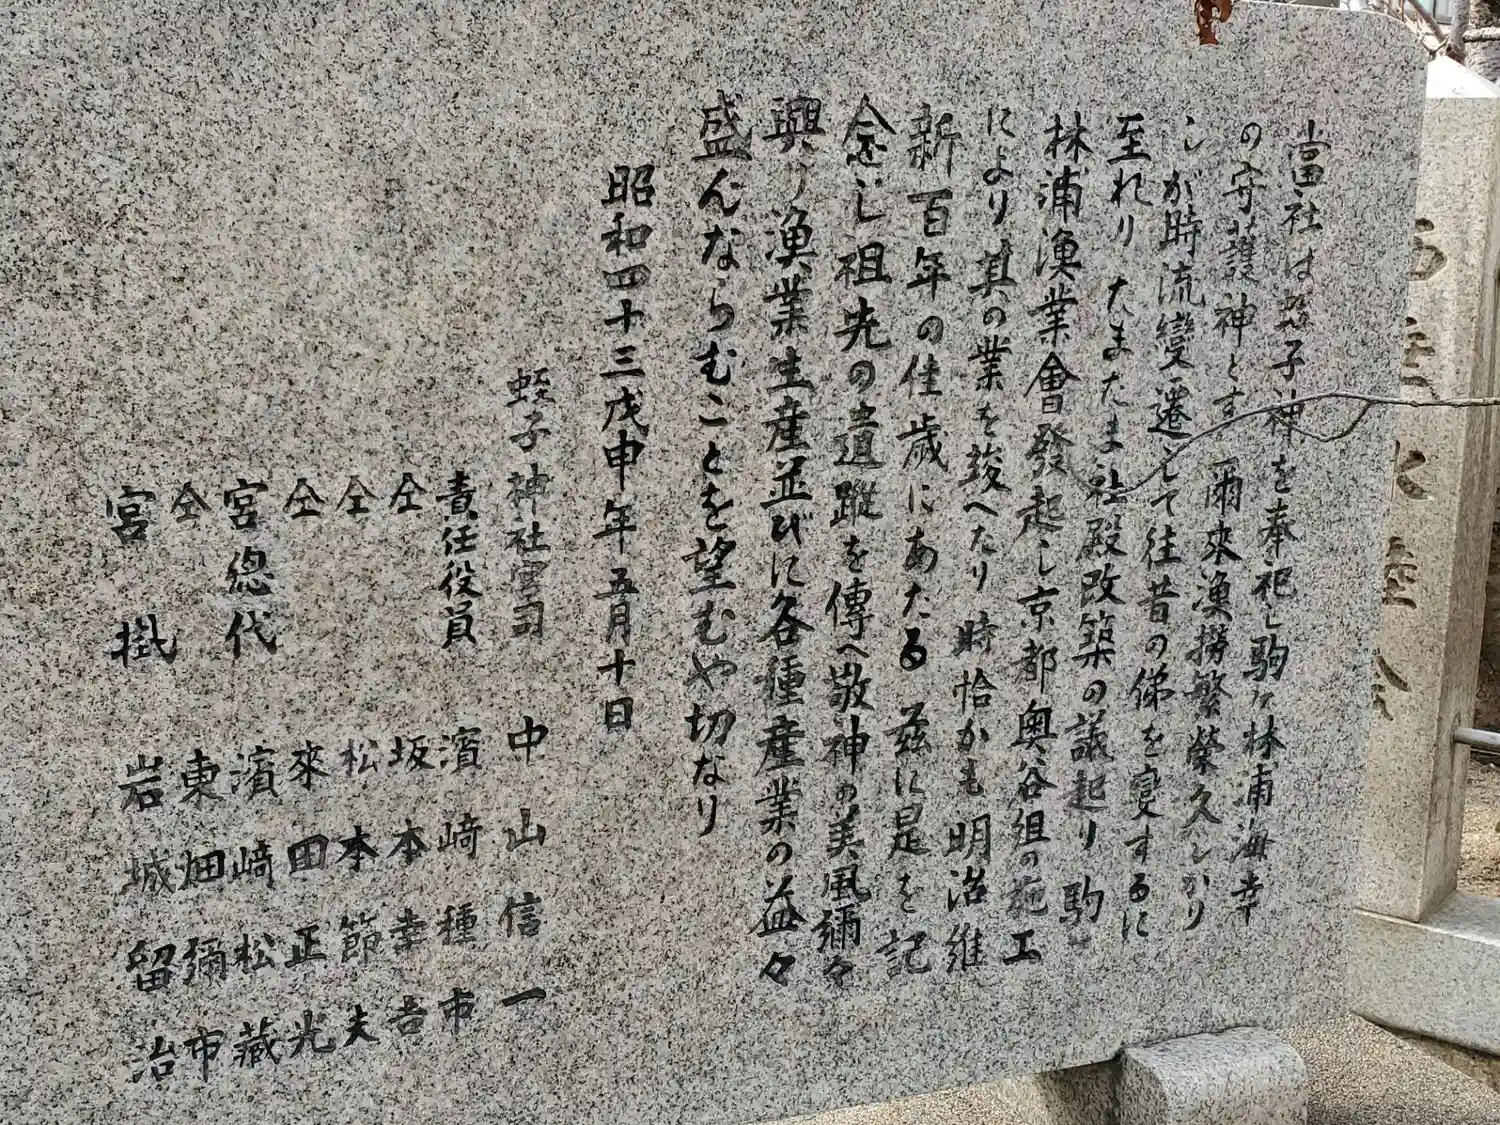 當社は蛭子神を奉祀し駒ヶ林浦海幸
の守護神とす 爾來漁撈繁榮久しかり
しが時流變遷して往昔の俤を変するに
至れり たまたま社殿改築の議起り 駒
林浦漁業會發起し京都奥谷組の施工
により其の業を竣へたり 時恰かも明治維
新百年の佳歳にあたる 茲に是を記
念し祖先の遺蹤を傳へ敬神の美風彌々
興り漁業生産並びに各種産業の益々
盛んならむことを望むや切なり
昭和四十三戊申年五月十日
蛭子神社宮司 中山信一
責任役員 濱﨑種市
仝 坂本幸吉
仝 松本節夫
仝 來田正光
宮總代 濱﨑松藏
仝 東畑彌市
宮掛 岩城留治